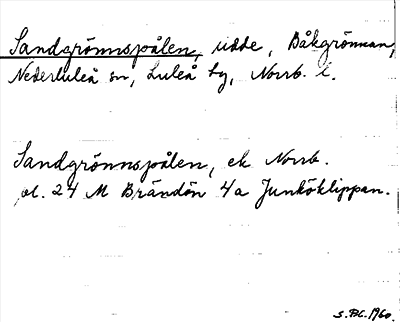 Sandgrönnspålen, udde, Båkgrönnan,
Nederluleå sn, Luleå tg, Norrb. l.
Sandgrönnspålen, ek Norrb.
pl. 24 M Brändön 4a Junköklippan.
S.Bl. 1960.